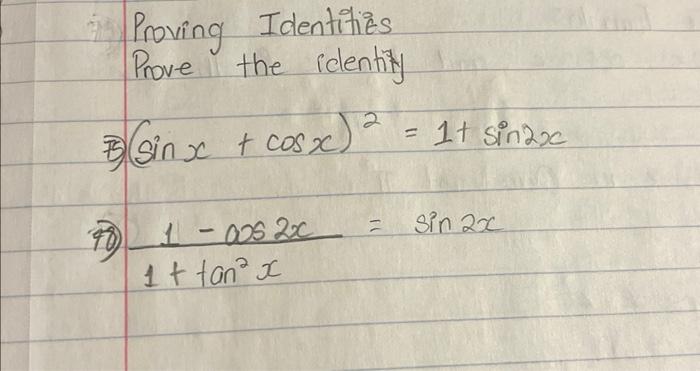 Proving Identities
Prove the identity
75) (sin x + cos x)² = 1 + sin2x
1 - cos 2x = sin 2x
1 + tan² x